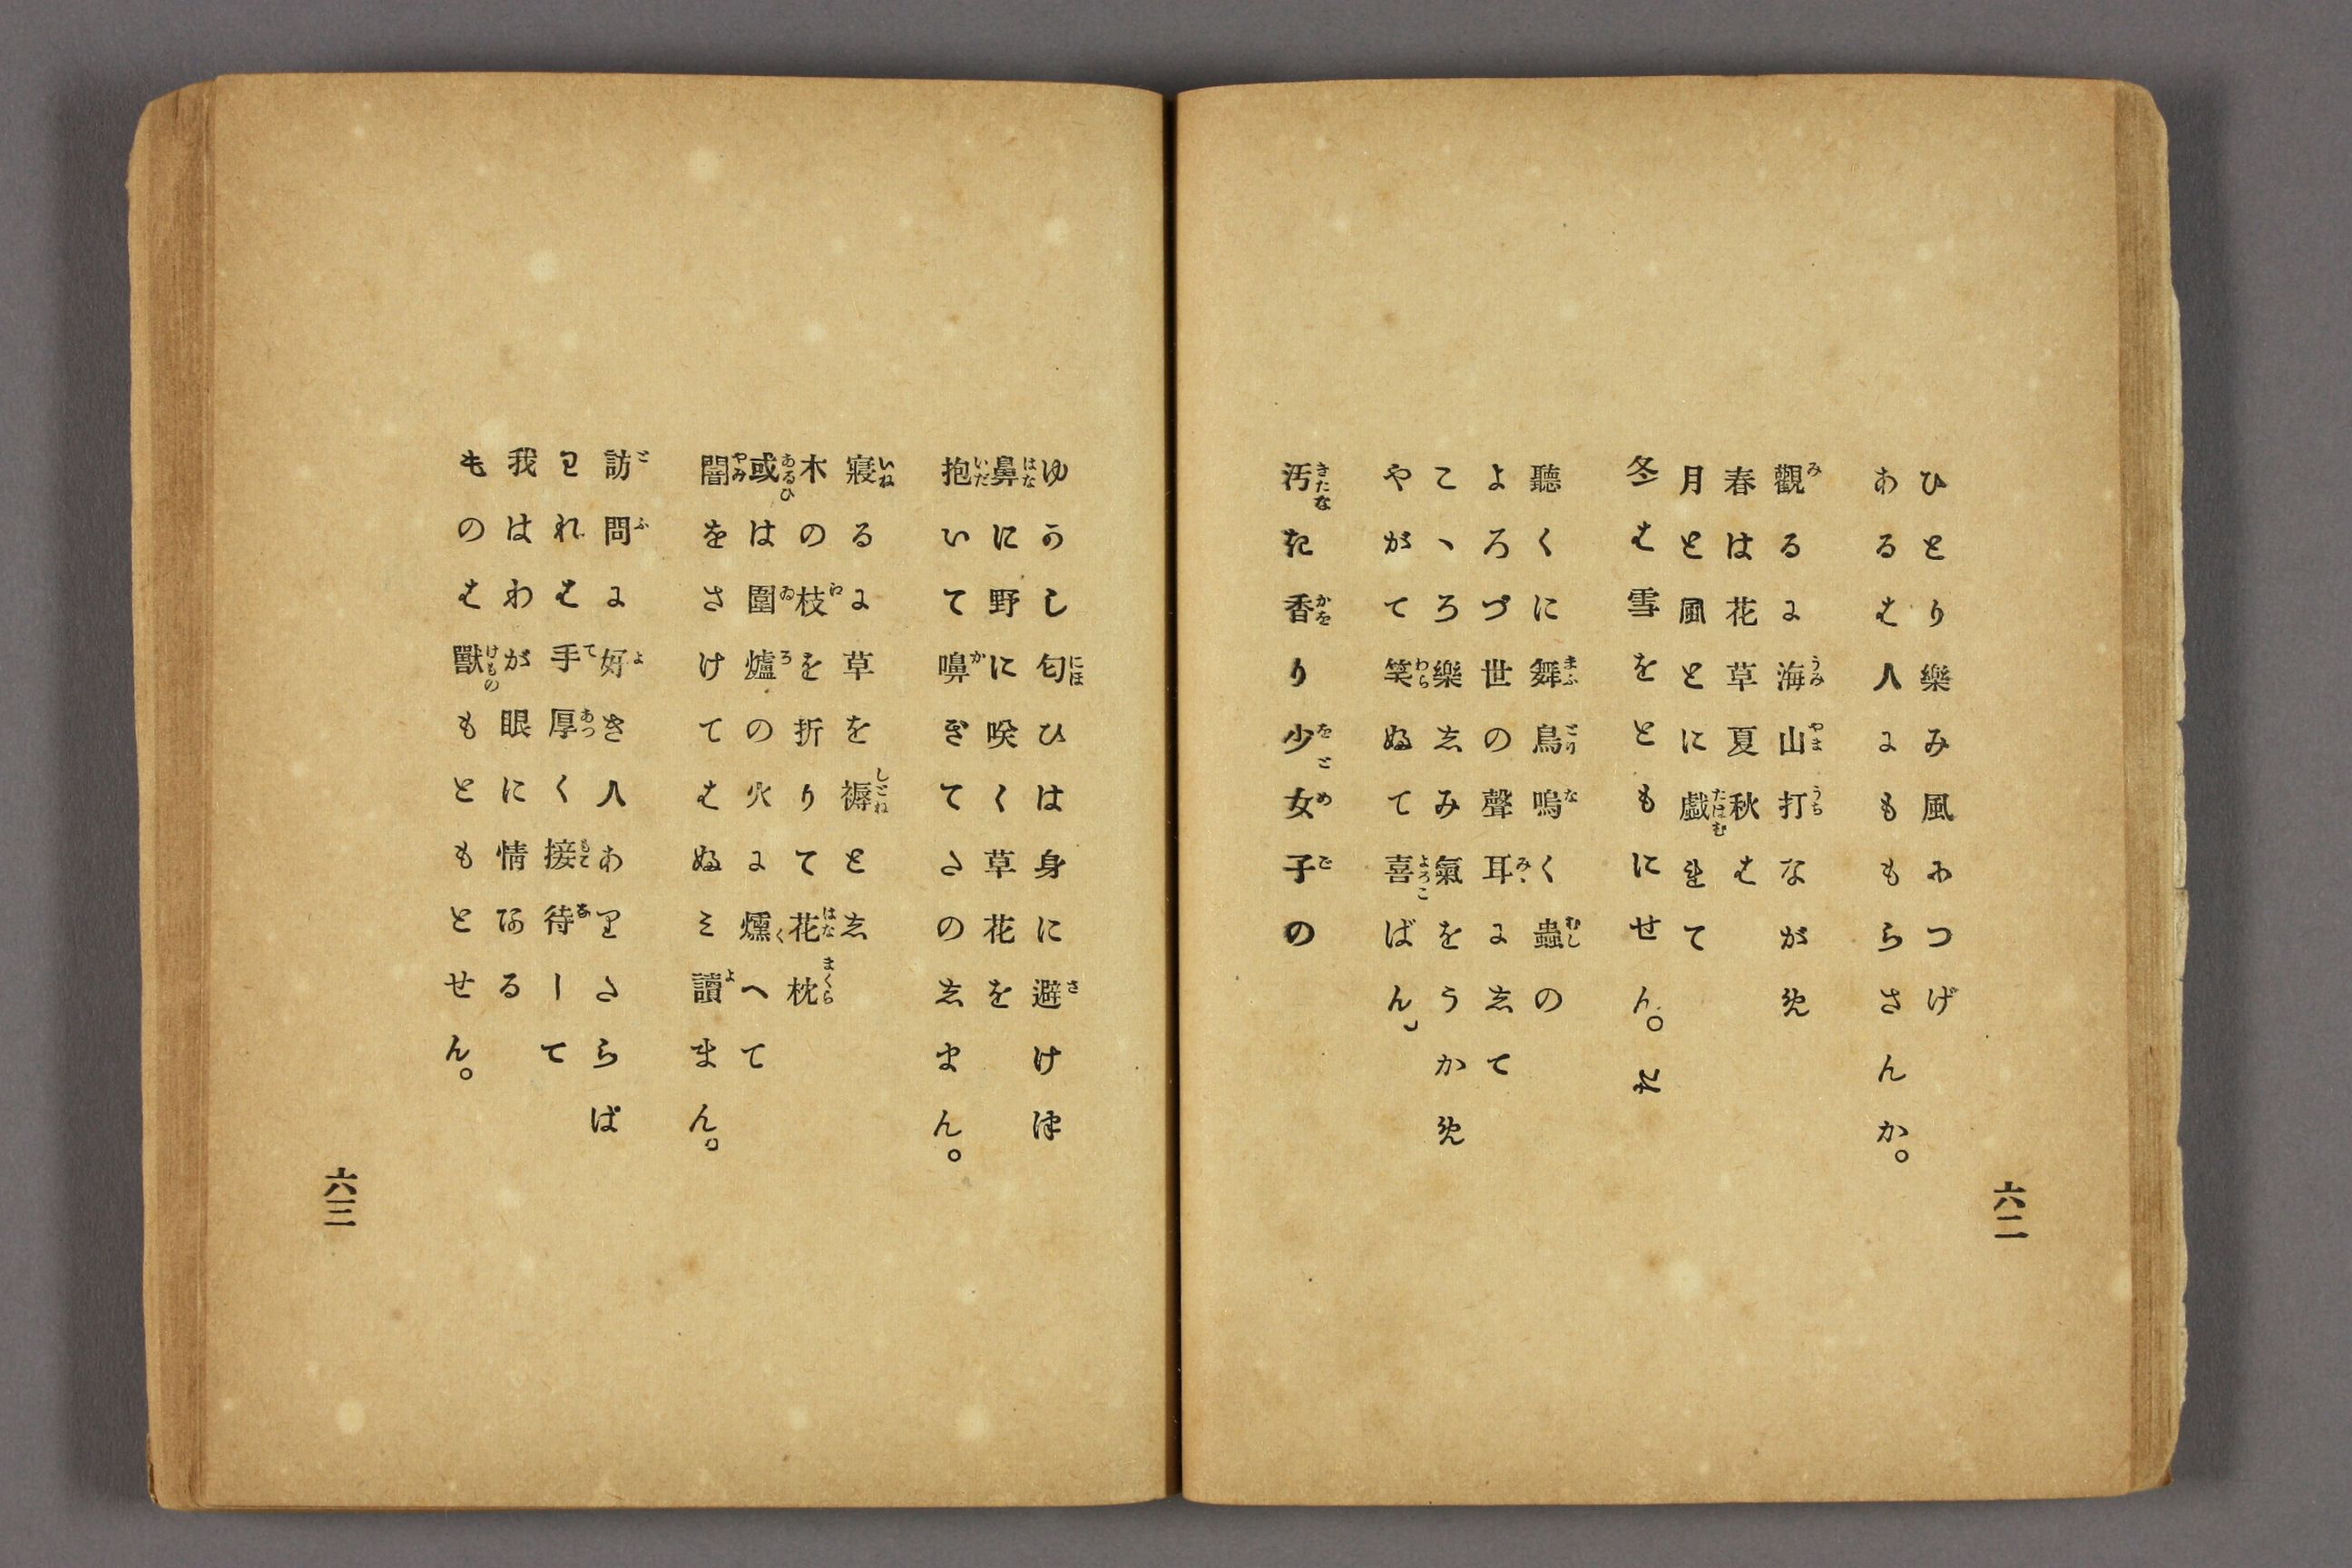 ひとり樂み風につげ
あるは人にももらさんか。
觀るに海山打ながめ
春は花草夏秋は
月と風とに戲れて
冬は雪をともにせん。
聽くに舞鳥鳴く蟲の
よろづ世の聲耳にして
こゝろ樂しみ氣をうかめ
やがて笑ふて喜ばん。
汚き香り少女子の
六二
ゆかし匂ひは身に避けつ
鼻に野に咲く草花を
抱いて嗅ぎてたのしまん。
寢るに草を褥とし
木の枝を折りて花枕
或は圍爐の火に燻へて
闇をさけてはふミ讀まん。
訪問に好き人ありたらば
われは手厚く接待して
我はわが眼に情ある
ものは獸もともとせん。
六三